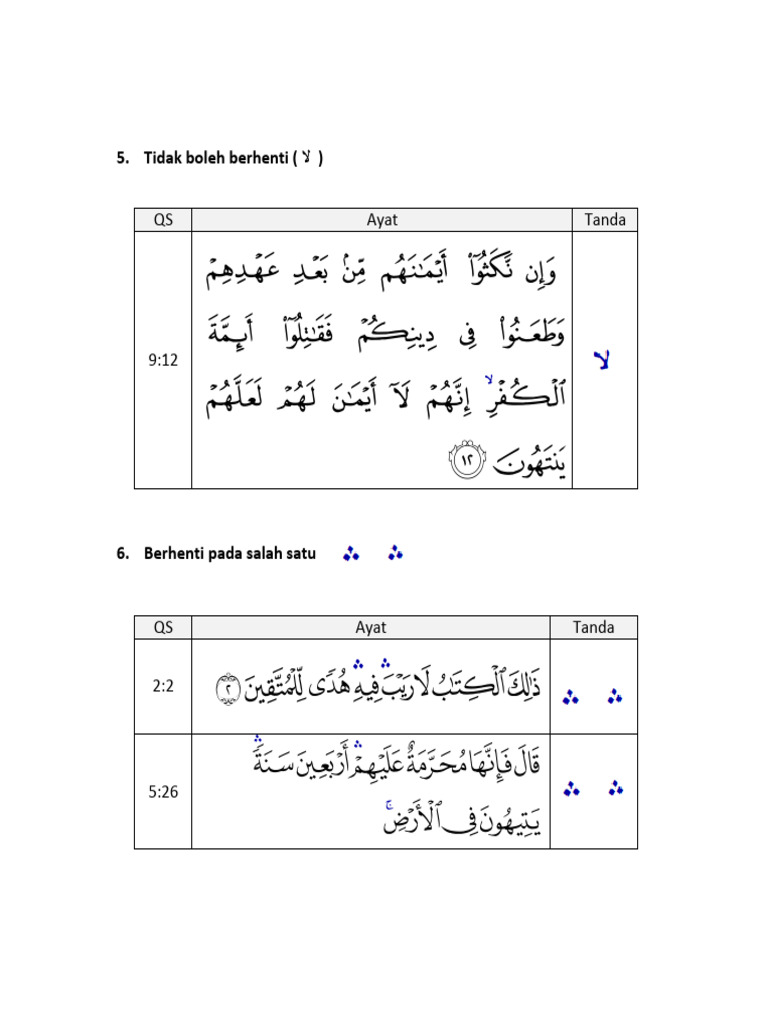 5. Tidak boleh berhenti ( لا )
QS Ayat Tanda
وَإِن نَّكَثُوٓا۟ أَيْمَـٰنَهُم مِّنۢ بَعْدِ عَهْدِهِمْ
وَطَعَنُوا۟ فِى دِينِكُمْ فَقَـٰتِلُوٓا۟ أَئِمَّةَ
9:12 لا
ٱلْكُفْرِ ۙ إِنَّهُمْ لَآ أَيْمَـٰنَ لَهُمْ لَعَلَّهُمْ
يَنتَهُونَ ١٢
6. Berhenti pada salah satu ۛ ۛ
QS Ayat Tanda
2:2 ذَٰلِكَ ٱلْكِتَـٰبُ لَا رَيْبَ ۛ فِيهِ ۛ هُدًى لِّلْمُتَّقِينَ ٢ ۛ ۛ
قَالَ فَإِنَّهَا مُحَرَّمَةٌ عَلَيْهِمْ ۛ أَرْبَعِينَ سَنَةً ۛ
5:26 ۛ ۛ
يَتِيهُونَ فِى ٱلْأَرْضِ ۚ